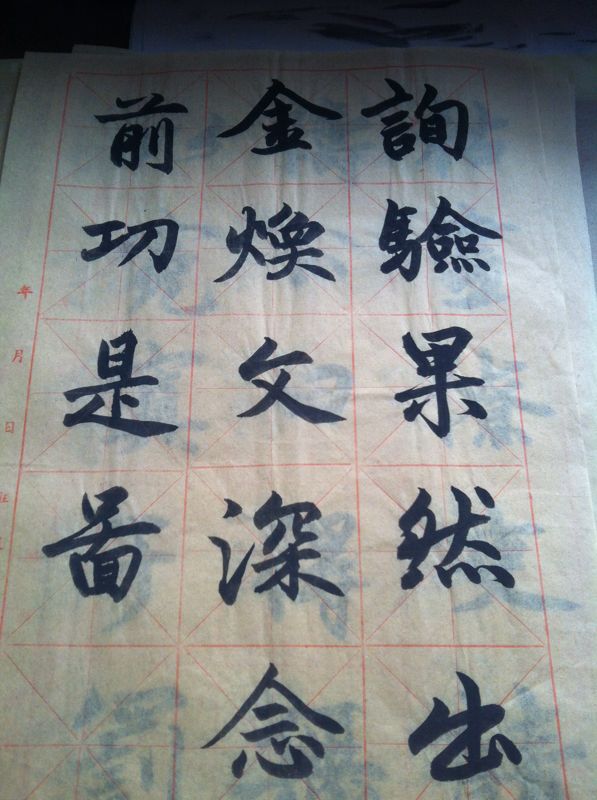 詢驗果然出
金煥文深念
前功是啚
年月日